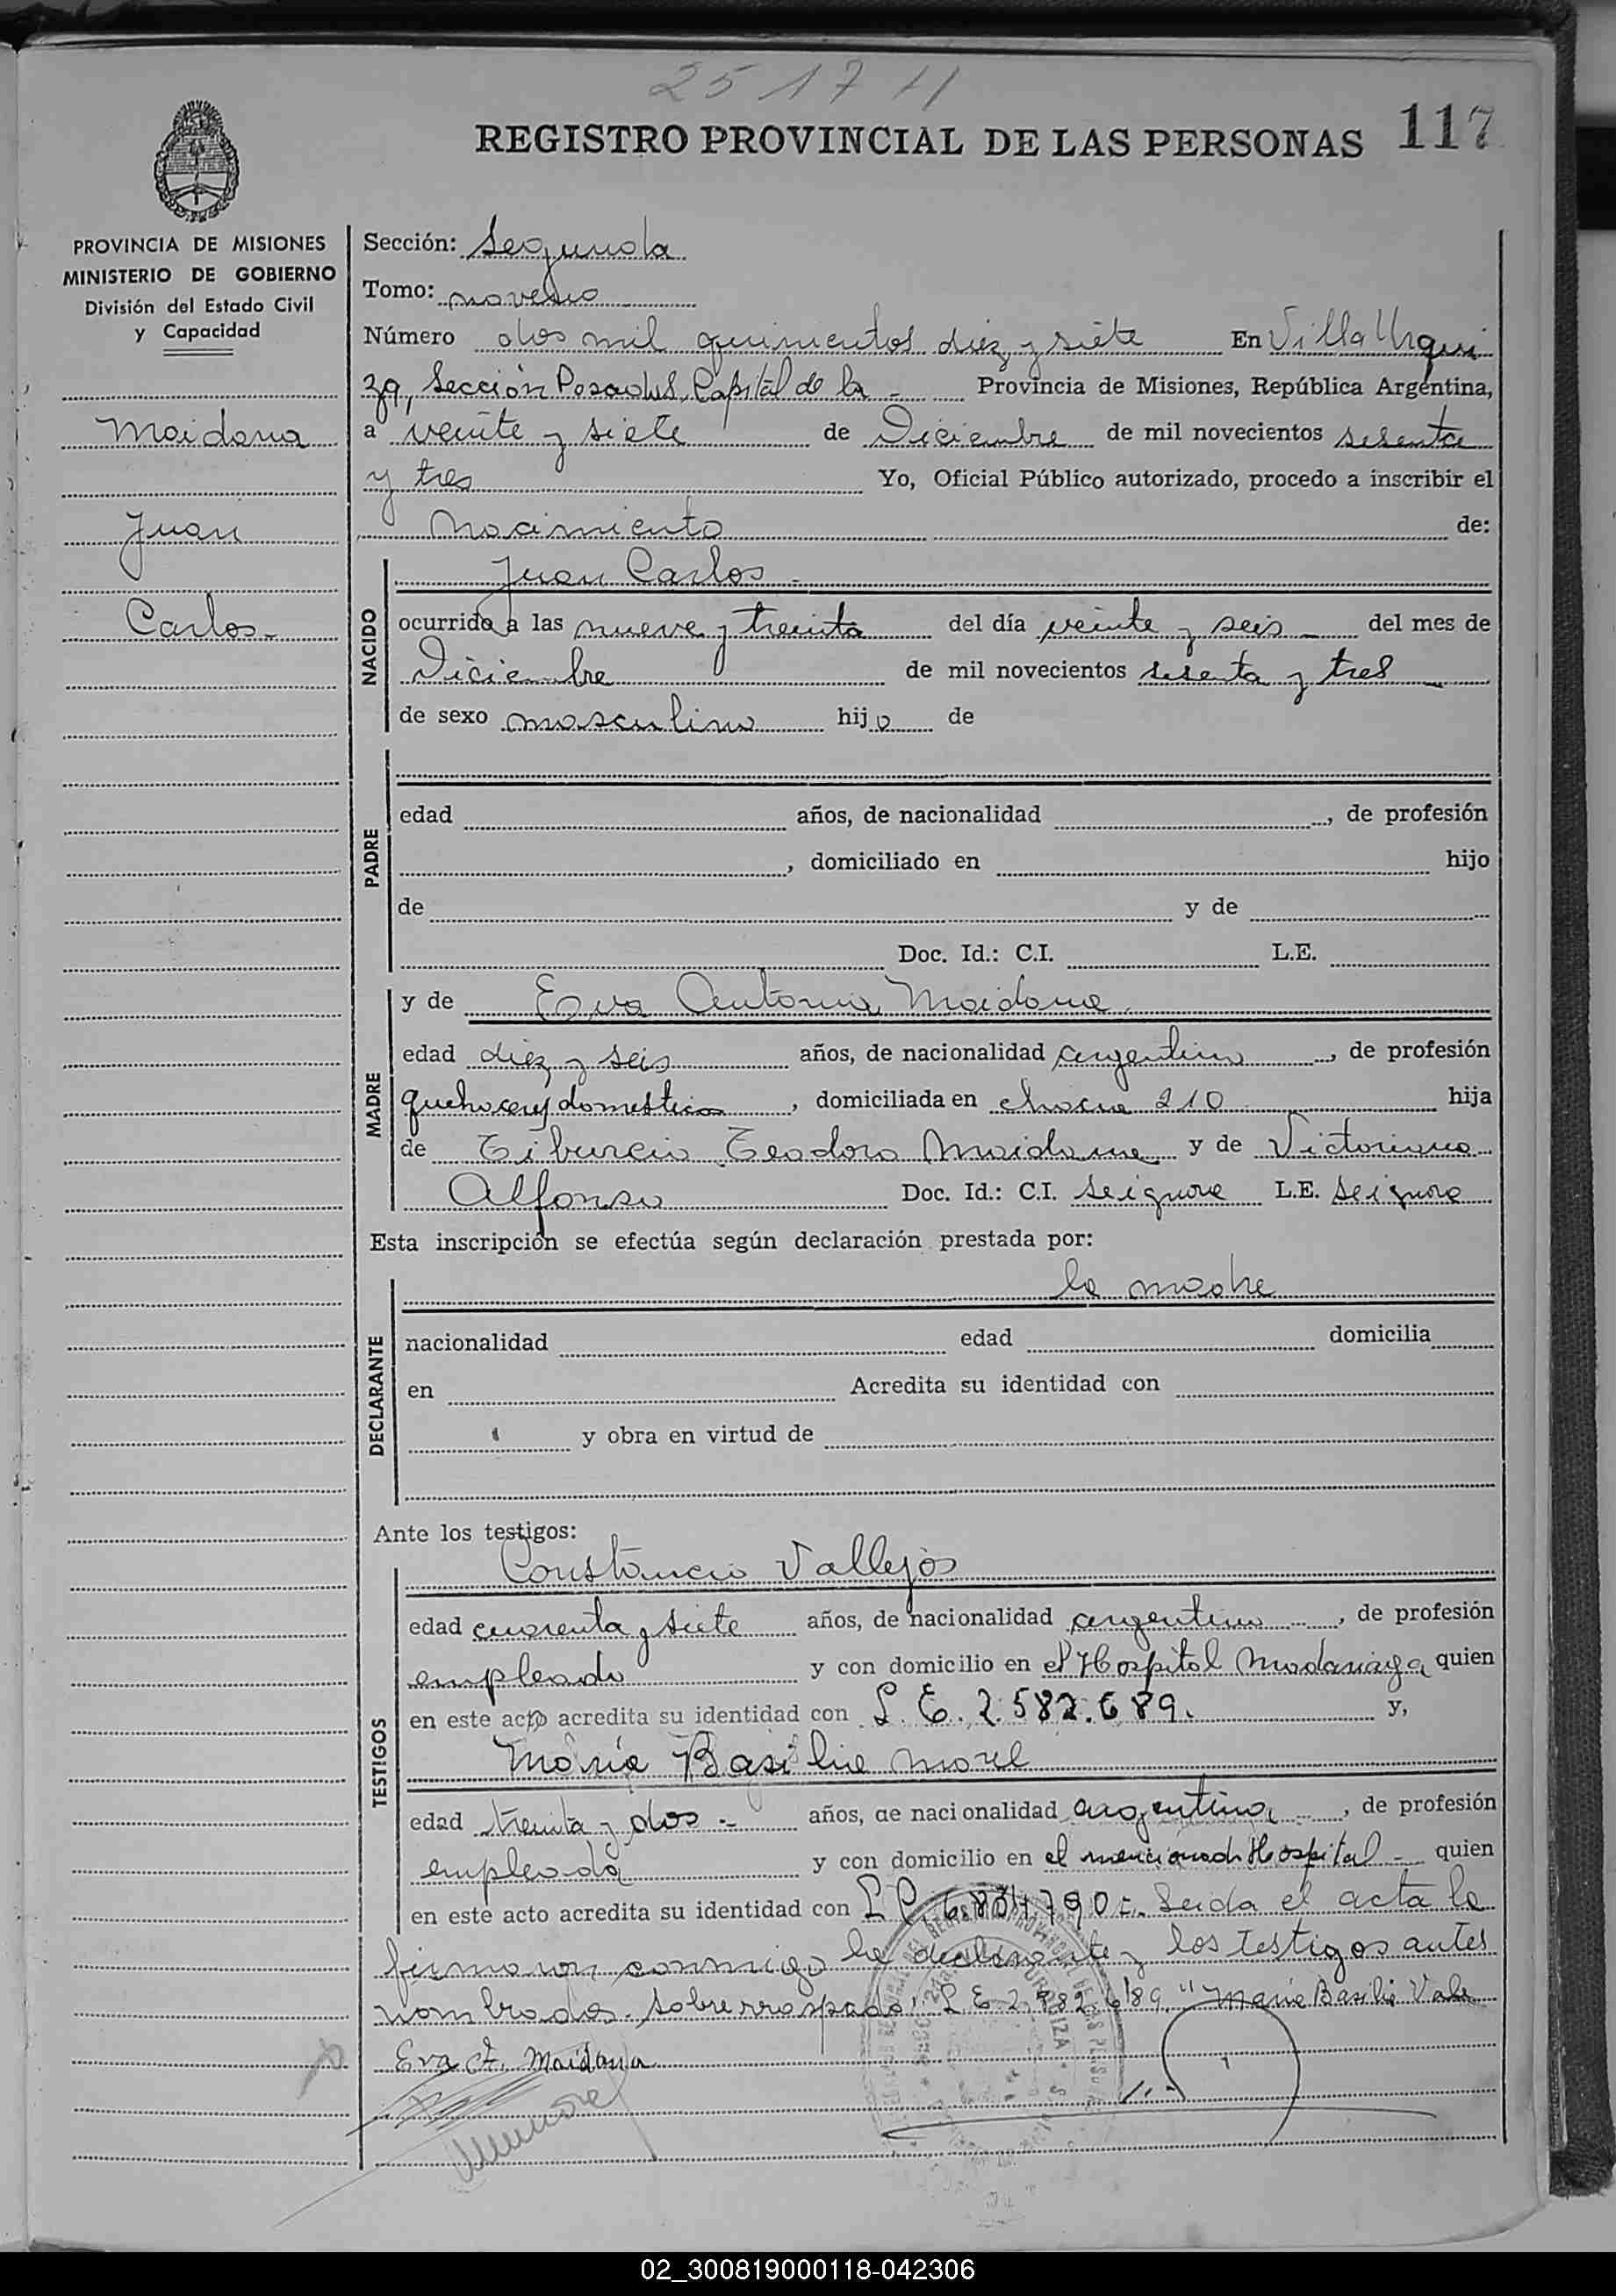 2517 11
REGISTRO PROVINCIAL DE LAS PERSONAS 117
PROVINCIA DE MISIONES
MINISTERIO DE GOBIERNO
División del Estado Civil
y Capacidad
Maidana
Juan
Carlos.-
Sección: Segunda
Tomo: noveno
Número dos mil quinientos diez y siete En Villa Urqui
za, Sección Posadas, Capital de la - Provincia de Misiones, República Argentina,
a veinte y siete de Diciembre de mil novecientos sesenta
y tres Yo, Oficial Público autorizado, procedo a inscribir el
nacimiento de:
NACIDO
Juan Carlos -
ocurrido a las nueve y treinta del día veinte y seis - del mes de
Diciembre de mil novecientos sesenta y tres -
de sexo masculino hijo de
PADRE
edad años, de nacionalidad , de profesión
, domiciliado en hijo
de y de
Doc. Id.: C.I. L.E.
MADRE
y de Eva Antonia Maidana
edad diez y seis años, de nacionalidad argentina , de profesión
quehaceres domesticos , domiciliada en chacra 210 hija
de Tiburcio Teodoro Maidana y de Victoriana
Alfonso Doc. Id.: C.I. se ignora L.E. se ignora
Esta inscripción se efectúa según declaración prestada por:
DECLARANTE
la madre
nacionalidad edad domicilia
en Acredita su identidad con
y obra en virtud de
Ante los testigos:
TESTIGOS
Constancio Vallejos
edad cuarenta y siete años, de nacionalidad argentino , de profesión
empleado y con domicilio en el Hospital Madariaga quien
en este acto acredita su identidad con L. E. 2.582.689. y,
María Basilia Morel
edad treinta y dos - años, de nacionalidad argentina , de profesión
empleada y con domicilio en el mencionado Hospital - quien
en este acto acredita su identidad con L C 6.831.790 -. Leida el acta la
firmaron conmigo la declarante y los testigos antes
nombrados. Sobrerraspado: "L E 2.582.689" Maria Basilia Vale
Eva A. Maidana
02_300819000118-042306